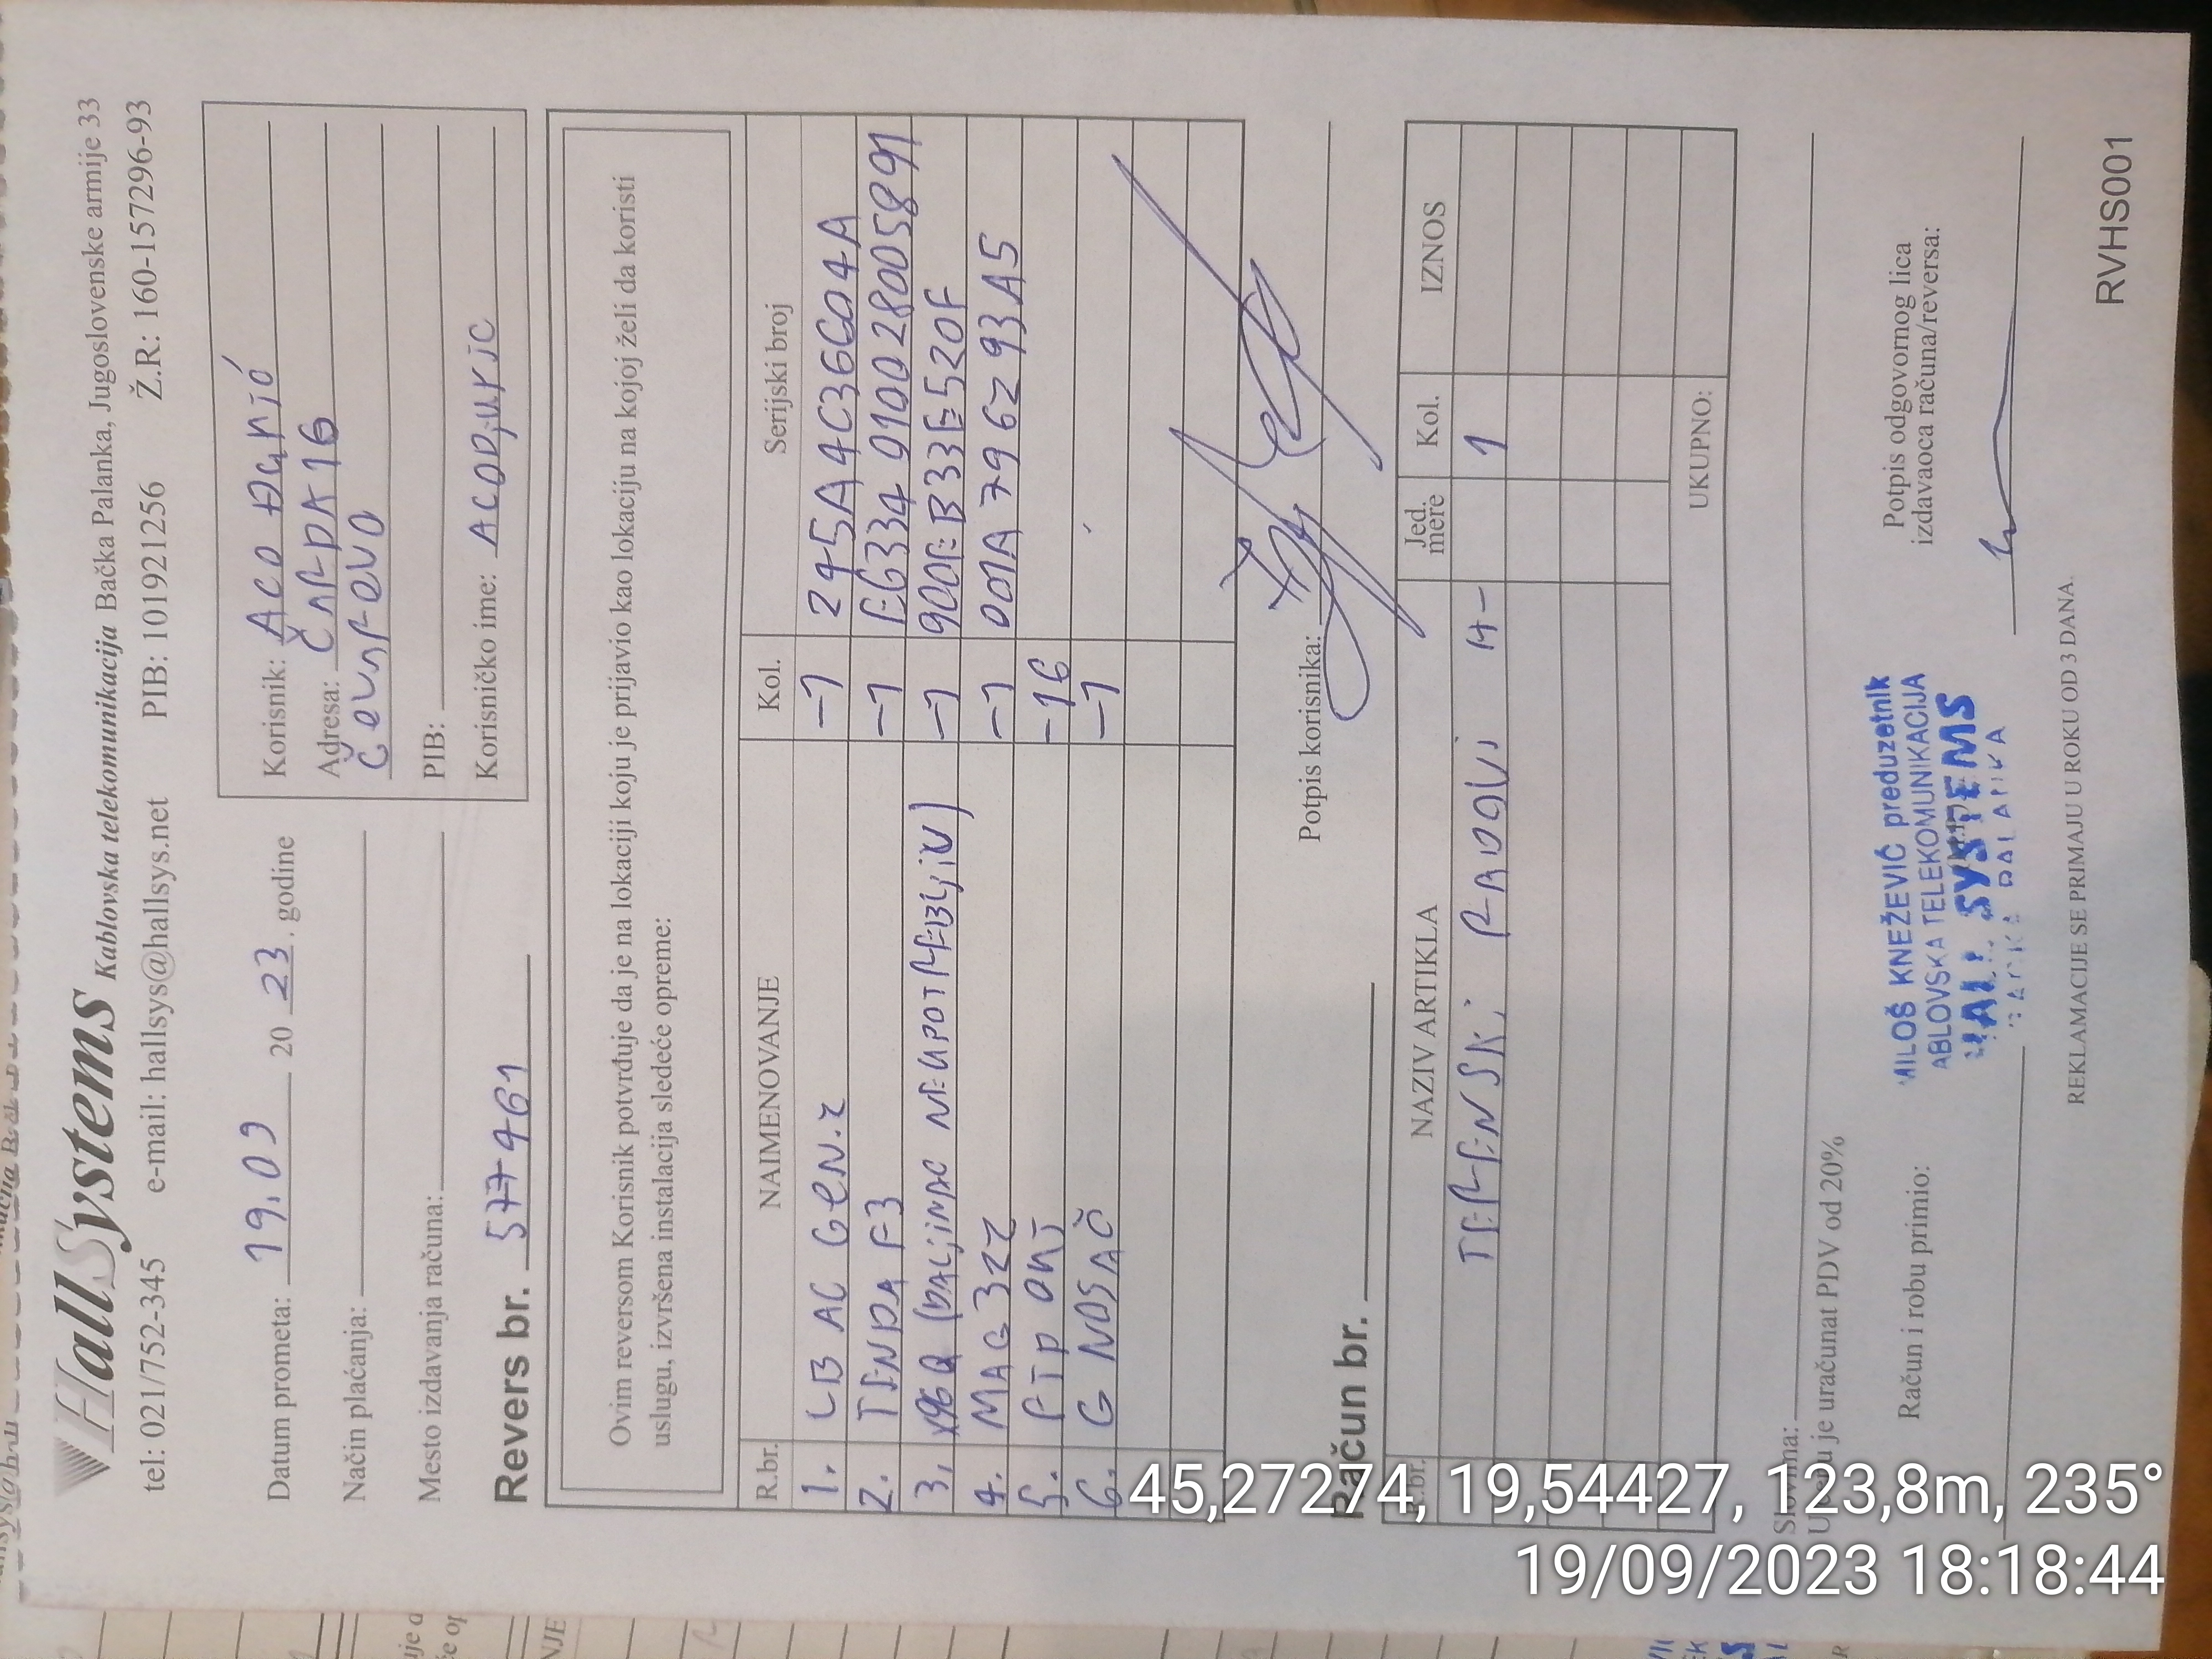 HallSystems Kablovska telekomunikacija Bačka Palanka, Jugoslovenske armije 33
tel: 021/752-345 e-mail: hallsys@hallsys.net PIB: 101921256 Ž.R: 160-157296-93
Datum prometa: 19.09 20 23. godine
Način plaćanja:
Mesto izdavanja računa:
Korisnik: ACO ĐURIĆ
Adresa:
PIB:
Korisničko ime: ACODJURIC
Revers br. 577461
Ovim reversom Korisnik potvrđuje da je na lokaciji koju je prijavio kao lokaciju na kojoj želi da koristi
uslugu, izvršena instalacija sledeće opreme:
R.br. NAIMENOVANJE Kol. Serijski broj
1. LB AC GEN.2 -1 245A4C36604A
2. TENDA F3 -1 E6334010028005891
3. (DALJINAC NEUPOTREBLJIV) -1 900EB33E520F
4. MAG 322 -1 001A796293A5
5. FTP -16
6. G NOSAČ -1
Potpis korisnika:
Račun br.
R.br. NAZIV ARTIKLA Jed. mere Kol. IZNOS
TERENSKI RADOVI 1
UKUPNO:
Slovima:
U cenu je uračunat PDV od 20%
Račun i robu primio:
MILOŠ KNEŽEVIĆ preduzetnik
KABLOVSKA TELEKOMUNIKACIJA
HALL SYSTEMS
BAČKA PALANKA
Potpis odgovornog lica
izdavaoca računa/reversa:
REKLAMACIJE SE PRIMAJU U ROKU OD 3 DANA.
RVHS001
45,27274, 19,54427, 123,8m, 235°
19/09/2023 18:18:44